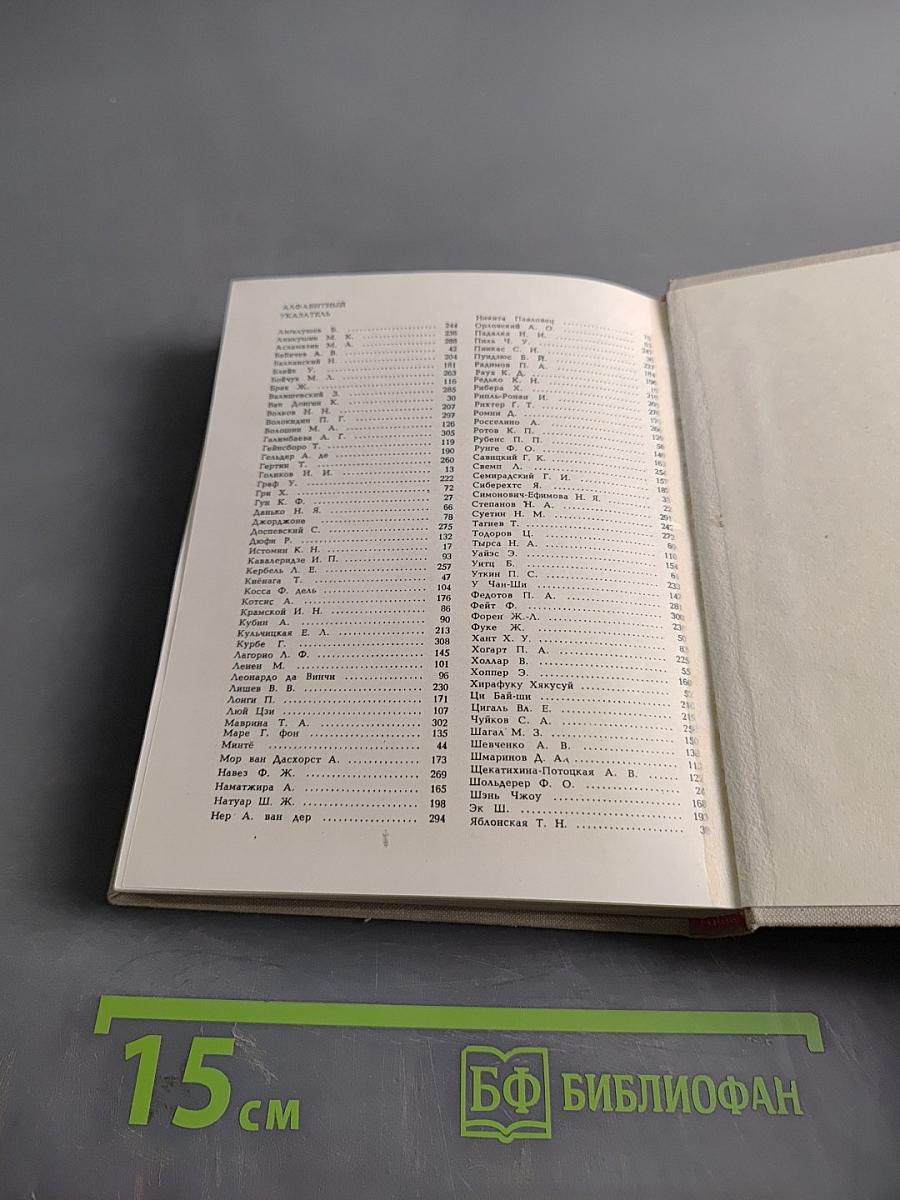 АЛФАВИТНЫЙ
УКАЗАТЕЛЬ
Аникушин М. К. 236
Асламазян М. А. 288
Бабичев А. В. 42
Балканский Н. 204
Блейк У. 181
Бойчук М. Л. 263
Брак Ж. 116
Валишевский З. 285
Ван Донген К. 30
Волков Н. Н. 207
Волокидин П. Г. 297
Волошин М. А. 126
Галимбаева А. Г. 305
Гейнсборо Т. 119
Гельдер А. де 190
Гертин Т. 260
Голиков И. И. 13
Граф У. 222
Гри Х. 72
Гун К. Ф. 27
Данько Н. Я. 66
Джорджоне 78
Доспевский С. 275
Дюфи Р. 132
Истомин К. Н. 17
Кавалеридзе И. П. 93
Кербель Л. Е. 257
Киёнага Т. 47
Косса Ф. дель 104
Котсис А. 176
Крамской И. Н. 86
Кубин А. 90
Кульчицкая Е. Л. 213
Курбе Г. 308
Лагорио Л. Ф. 145
Ленен М. 101
Леонардо да Винчи 96
Лишев В. В. 230
Лонги П. 171
Люй Цзи 107
Маврина Т. А. 302
Маре Г. фон 135
Минтё 44
Мор ван Дасхорст А. 173
Навез Ф. Ж. 269
Наматжира А. 165
Натуар Ш. Ж. 198
Нер А. ван дер 294
Никита Павловец
Орловский А. О.
Падалка И. И.
Пиль Ч. У.
Пинкас С. Н.
Пуидлюс Б. Й.
Радимов П. А.
Раух К. Д.
Редько К. Н.
Рибера Х.
Рипль-Ронаи И.
Рихтер Г. Т.
Ромни Д.
Росселино А.
Ротов К. П.
Рубенс П. П.
Рунге Ф. О.
Савицкий Г. К.
Свемп Л.
Семирадский Г. И.
Сиберехтс Я.
Симонович-Ефимова Н. Я.
Степанов Н. А.
Суетин Н. М.
Тагиев Т.
Тодоров Ц.
Тырса Н. А.
Уайэс Э.
Уитц Б.
Уткин П. С.
У Чан-Ши
Федотов П. А.
Фейт Ф.
Форен Ж.-Л.
Фуке Ж.
Хант Х. У.
Хогарт П. А.
Холлар В.
Хоппер Э.
Хирафуку Хякусуй
Ци Бай-ши
Цигаль Вл. Е.
Чуйков С. А.
Шагал М. З.
Шевченко А. В.
Шмаринов Д. А.
Щекатихина-Потоцкая А. В.
Шольдерер Ф. О.
Шэнь Чжоу
Эк Ш.
Яблонская Т. Н.
15 см
БФ БИБЛИОФАН